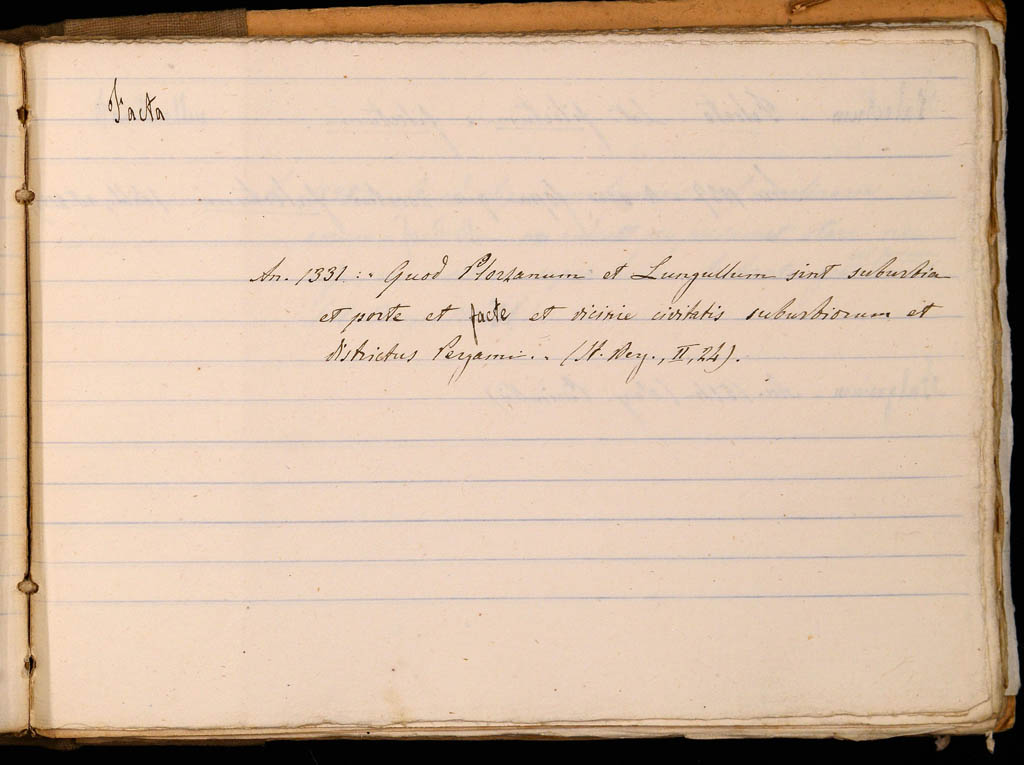 Facta
An. 1331: „ Quod Plorzanum et Lungullum sint suburbia
et porte et facte et vicinie civitatis suburbiorum et
districtus Pergami. „ (St. Perg., II, 24).